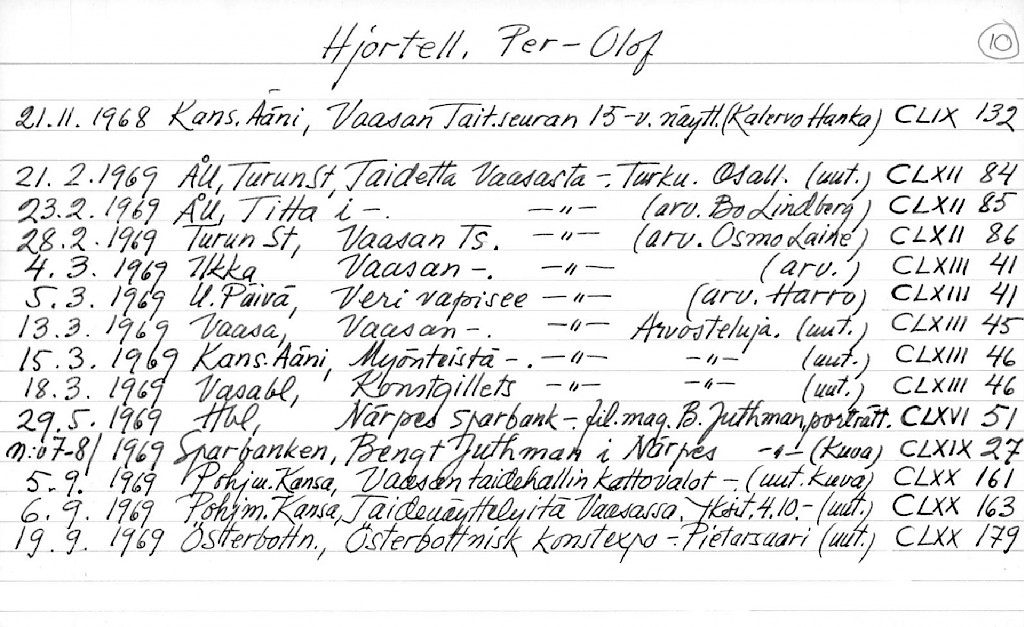 Hjortell, Per-Olof 10
21.11.1968 Kans. Ääni, Vaasan Tait.seuran 15-v. näytt. (Kalervo Hanka) CLIX 132
21. 2.1969 ÅU, Turun St, Taidetta Vaasasta -. Turku. Osall. (uut.) CLXII 84
23.2. 1969 ÅU, Titta i -. -"- (arv. Bo Lindberg) CLXII 85
28.2. 1969 Turun St, Vaasan Ts. -"- (arv. Osmo Laine) CLXII 86
4. 3. 1969 Ilkka Vaasan -. -"- (arv.) CLXIII 41
5. 3. 1969 U. Päivä, Veri vapisee -"- (arv. Harro) CLXIII 41
13.3. 1969 Vaasa, Vaasan -. -"- Arvosteluja. (uut.) CLXIII 45
15.3. 1969 Kans. Ääni, Myönteistä -. -"- -"- (uut.) CLXIII 46
18.3. 1969 Vasabl, Konstgillets -"- -"- (uut.) CLXIII 46
29.5. 1969 Hbl, Närpes sparbank - fil.mag. B. Juthman, porträtt. CLXVI 51
n:o 7-8/ 1969 Sparbanken, Bengt Juthman i Närpes -"- (Kuva) CLXIX 27
5.9. 1969 Pohjm. Kansa, Vaasan taidehallin kattovalot -. (uut. kuva) CLXX 161
6. 9. 1969 Pohjm. Kansa, Taidenäyttelyitä Vaasassa. 4.10. - (uut.) CLXX 163
19.9. 1969 Österbottn., Österbottnisk konstexpo - Pietarsaari (uut.) CLXX 179